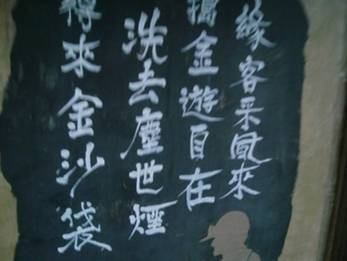 緣客采風來
金遊自在
洗去塵世煙
來金沙袋